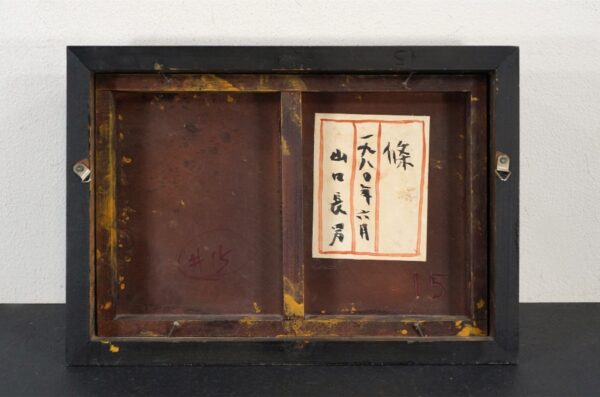 條
一九八〇年六月
山口長男
15